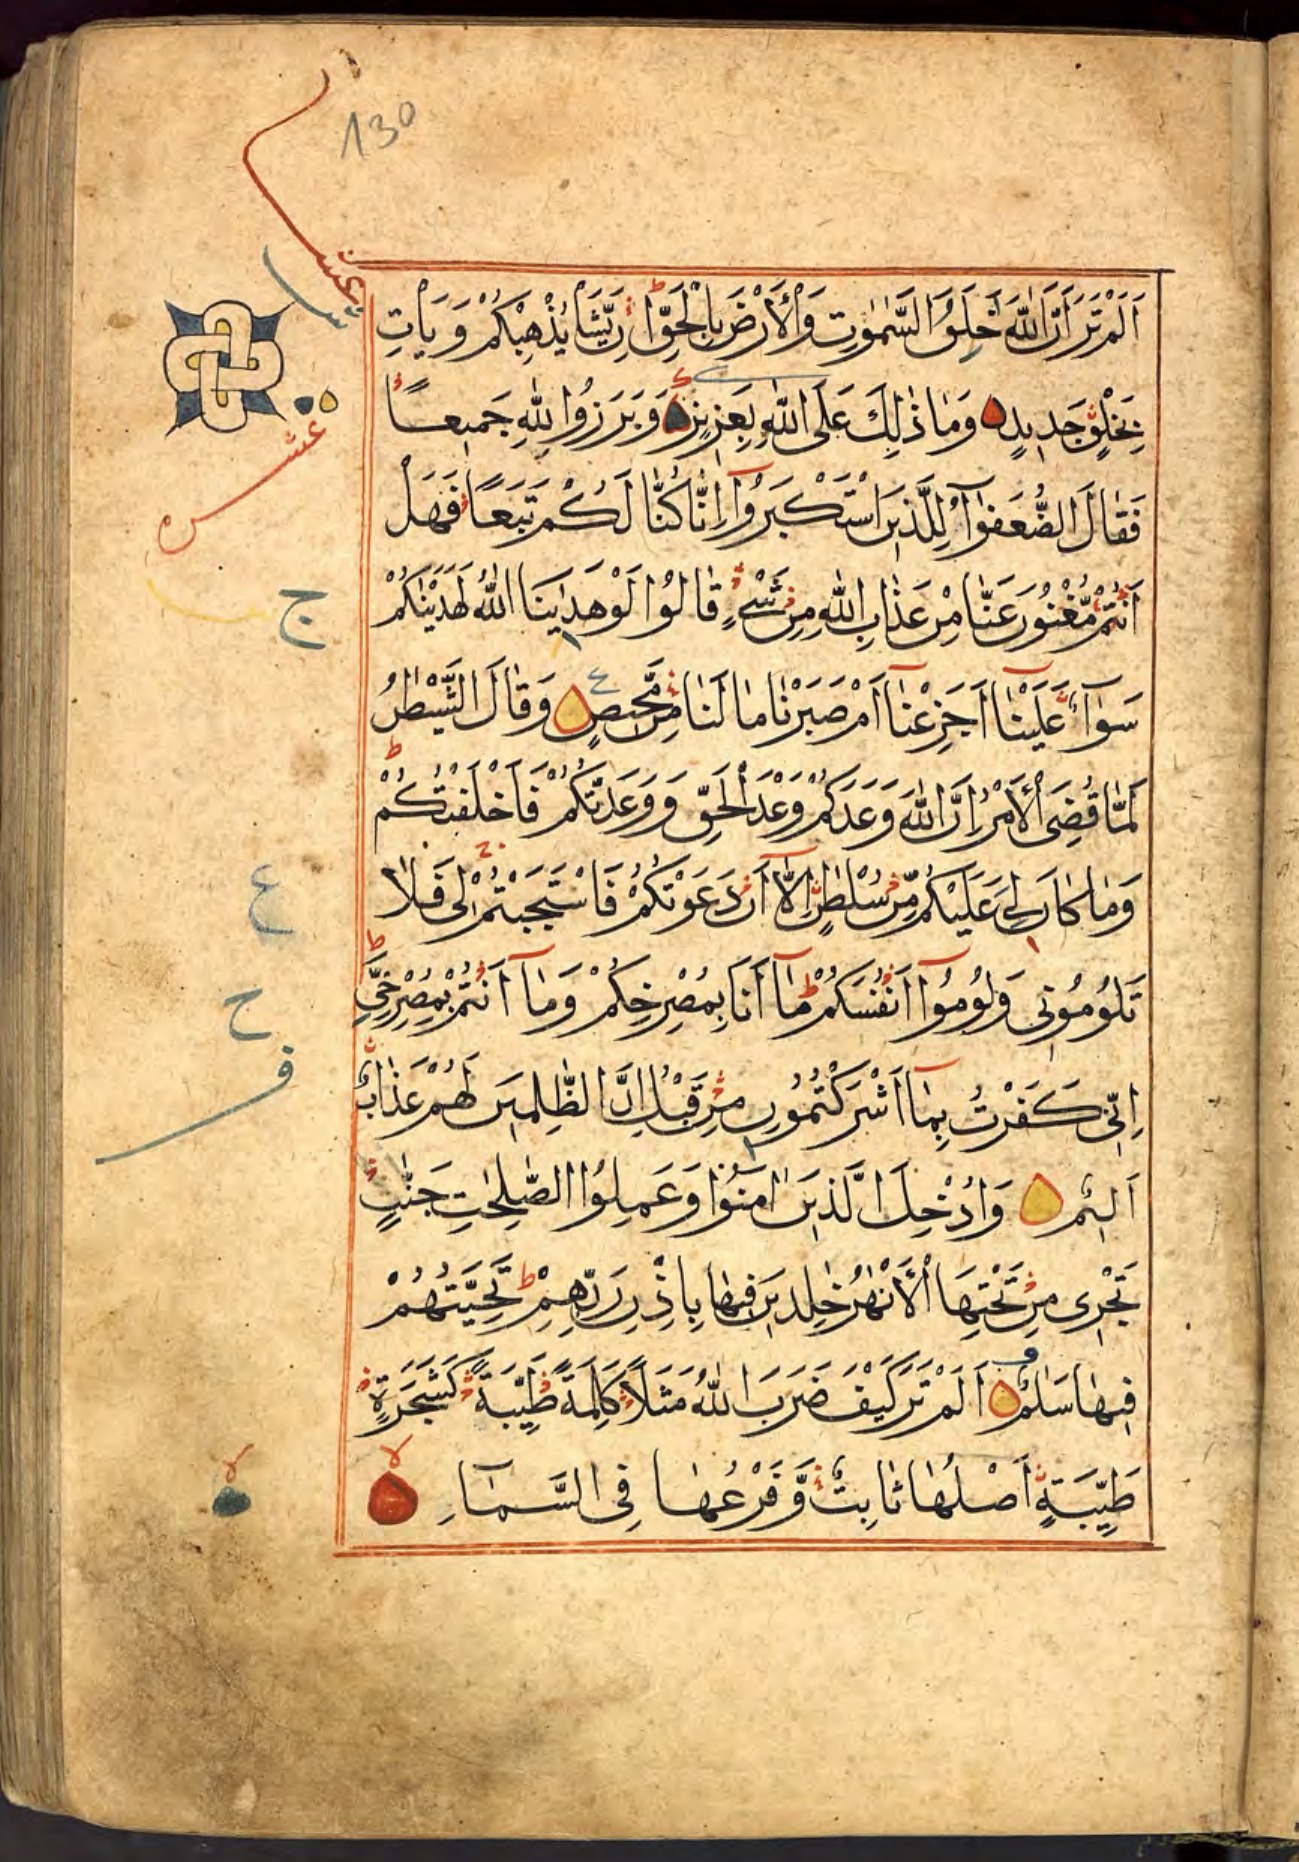 130
اَلَمْ تَرَ اَنَّ اللّٰهَ خَلَقَ السَّمٰوٰتِ وَالْاَرْضَ بِالْحَقِّ ط اِنْ يَّشَا يُذْهِبْكُمْ وَيَاتِ
بِخَلْقٍ جَدِيدٍ وَمَا ذٰلِكَ عَلَى اللّٰهِ بِعَزِيزٍ وَبَرَزُوا لِلّٰهِ جَمِيعًا
عشر
فَقَالَ الضُّعَفٰٓؤُا لِلَّذِينَ اسْتَكْبَرُوٓا اِنَّا كُنَّا لَكُمْ تَبَعًا فَهَلْ
اَنْتُمْ مُّغْنُونَ عَنَّا مِنْ عَذَابِ اللّٰهِ مِنْ شَيْءٍ قَالُوا لَوْ هَدٰينَا اللّٰهُ لَهَدَيْنٰكُمْ
ج
سَوَآءٌ عَلَيْنَآ اَجَزِعْنَآ اَمْ صَبَرْنَا مَا لَنَا مِنْ مَّحِيصٍ ع وَقَالَ الشَّيْطٰنُ
لَمَّا قُضِيَ الْاَمْرُ اِنَّ اللّٰهَ وَعَدَكُمْ وَعْدَ الْحَقِّ وَوَعَدْتُّكُمْ فَاَخْلَفْتُكُمْ ط
وَمَا كَانَ لِيَ عَلَيْكُمْ مِّنْ سُلْطٰنٍ اِلَّآ اَنْ دَعَوْتُكُمْ فَاسْتَجَبْتُمْ لِي فَلَا
ع
تَلُومُونِي وَلُومُوٓا اَنْفُسَكُمْ ط مَآ اَنَا بِمُصْرِخِكُمْ وَمَآ اَنْتُمْ بِمُصْرِخِيَّ ط
ح
اِنِّي كَفَرْتُ بِمَآ اَشْرَكْتُمُونِ مِنْ قَبْلُ اِنَّ الظّٰلِمِينَ لَهُمْ عَذَابٌ
ف
اَلِيمٌ وَاُدْخِلَ الَّذِينَ اٰمَنُوا وَعَمِلُوا الصّٰلِحٰتِ جَنّٰتٍ
تَجْرِي مِنْ تَحْتِهَا الْاَنْهٰرُ خٰلِدِينَ فِيهَا بِاِذْنِ رَبِّهِمْ ط تَحِيَّتُهُمْ
فِيهَا سَلٰمٌ اَلَمْ تَرَ كَيْفَ ضَرَبَ اللّٰهُ مَثَلًا كَلِمَةً طَيِّبَةً كَشَجَرَةٍ
طَيِّبَةٍ اَصْلُهَا ثَابِتٌ وَّفَرْعُهَا فِي السَّمَآءِ لا
لا